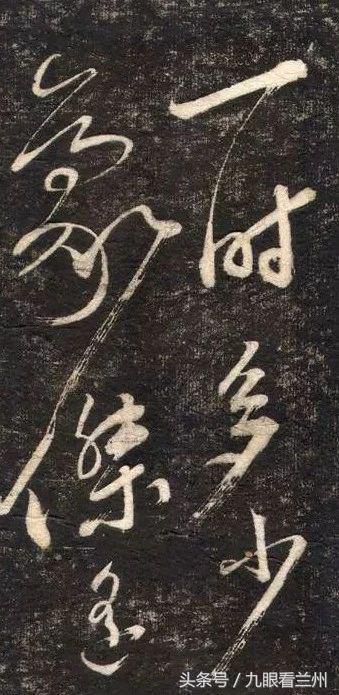 一时多少
豪傑遥
头条号／九眼看兰州